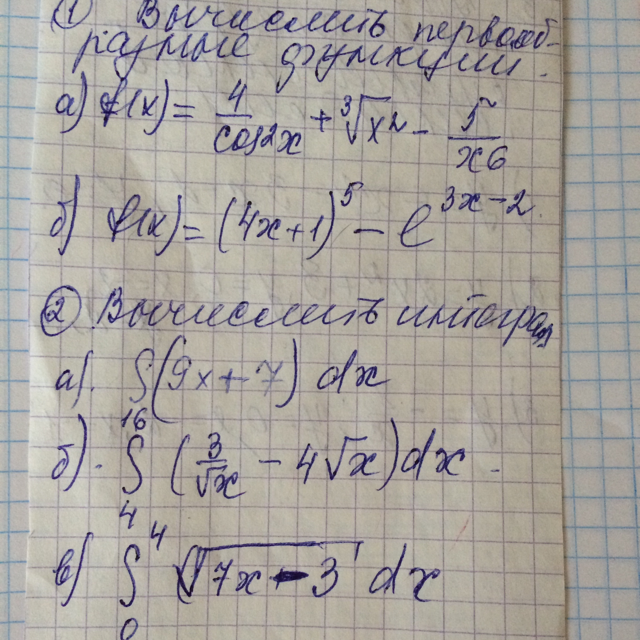 ① Вычислить первооб-
разные функции.
а) f(x) = 4/cos2x + ∛x² - 5/x6
б) f(x) = (4x+1)⁵ - e^(3x-2).
② Вычислить интеграл
а). ∫(9x+7) dx
б). ∫₄¹⁶ (3/√x - 4√x)dx.
в) ∫₀⁴ √(7x-3) dx